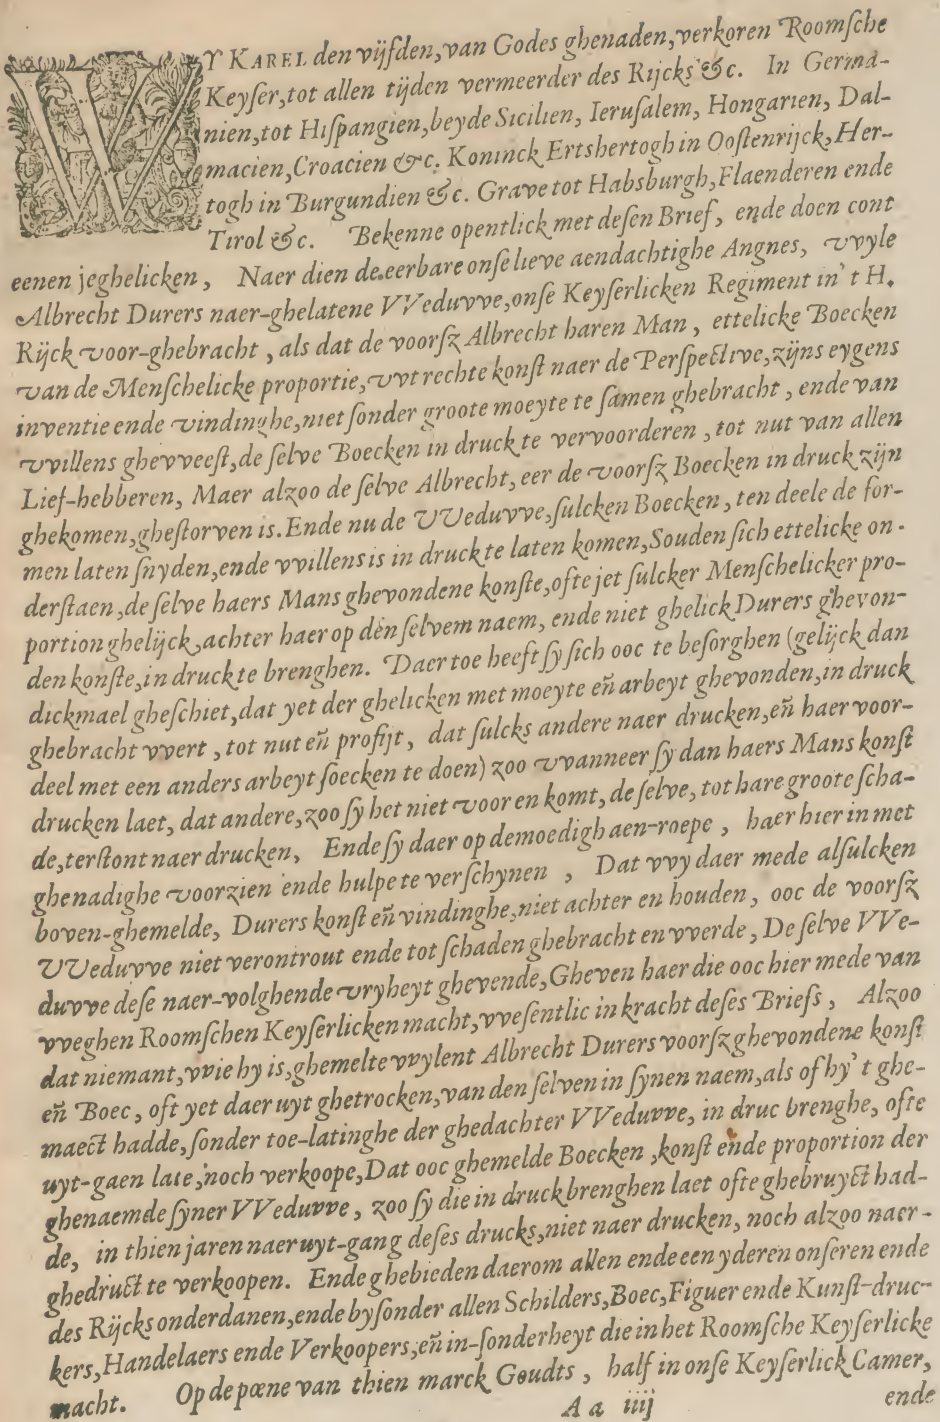 WY KAREL den vijfden, van Godes ghenaden, verkoren Roomsche
Keyser, tot allen tijden vermeerder des Rijcks &c. In Germa-
nien, tot Hispangien, beyde Sicilien, Ierusalem, Hongarien, Dal-
macien, Croacien &c. Koninck Ertshertogh in Oostenrijck, Her-
togh in Burgundien &c. Grave tot Habsburgh, Flaenderen ende
Tirol &c. Bekenne opentlick met desen Brief, ende doen cont
eenen jeghelicken, Naer dien de eerbare onse lieve aendachtighe Angnes, vvyle
Albrecht Durers naer-ghelatene VVeduvve, onse Keyserlicken Regiment in 't H.
Rijck voor-ghebracht, als dat de voorsz Albrecht haren Man, ettelicke Boecken
van de Menschelicke proportie, uyt rechte konst naer de Perspective, zijns eygens
inventie ende vindinghe, niet sonder groote moeyte te samen ghebracht, ende van
vvillens ghevveest, de selve Boecken in druck te vervoorderen, tot nut van allen
Lief-hebberen, Maer alzoo de selve Albrecht, eer de voorsz Boecken in druck zijn
ghekomen, ghestorven is. Ende nu de VVeduvve, sulcken Boecken, ten deele de for-
men laten snyden, ende vvillens is in druck te laten komen, Souden sich ettelicke on-
derstaen, de selve haers Mans ghevondene konste, ofte jet sulcker Menschelicker pro-
portion ghelijck, achter haer op den selvem naem, ende niet ghelick Durers ghevon-
den konste, in druck te brenghen. Daer toe heeft sy sich ooc te besorghen (gelijck dan
dickmael gheschiet, dat yet der ghelicken met moeyte eñ arbeyt ghevonden, in druck
ghebracht vvert, tot nut eñ profijt, dat sulcks andere naer drucken, eñ haer voor-
deel met een anders arbeyt soecken te doen) zoo vvanneer sy dan haers Mans konst
drucken laet, dat andere, zoo sy het niet voor en komt, de selve, tot hare groote scha-
de, terstont naer drucken, Ende sy daer op demoedigh aen-roepe, haer hier in met
ghenadighe voorzien ende hulpe te verschynen, Dat vvy daer mede alsulcken
boven-ghemelde, Durers konst eñ vindinghe, niet achter en houden, ooc de voorsz
VVeduvve niet verontrout ende tot schaden ghebracht en vverde, De selve VVe-
duvve dese naer-volghende vryheyt ghevende, Gheven haer die ooc hier mede van
vveghen Roomschen Keyserlicken macht, vvesentlic in kracht deses Briefs, Alzoo
dat niemant, vvie hy is, ghemelte vvylent Albrecht Durers voorsz ghevondene konst
eñ Boec, oft yet daer uyt ghetrocken, van den selven in synen naem, als of hy 't ghe-
maect hadde, sonder toe-latinghe der ghedachter VVeduvve, in druc brenghe, ofte
uyt-gaen late, noch verkoope, Dat ooc ghemelde Boecken, konst ende proportion der
ghenaemde syner VVeduvve, zoo sy die in druck brenghen laet ofte ghebruyct had-
de, in thien jaren naer uyt-gang deses drucks, niet naer drucken, noch alzoo naer-
ghedruct te verkoopen. Ende ghebieden daerom allen ende een yderen onseren ende
des Rijcks onderdanen, ende bysonder allen Schilders, Boec, Figuer ende Kunst-druc-
kers, Handelaers ende Verkoopers, eñ in-sonderheyt die in het Roomsche Keyserlicke
macht. Op de pœne van thien marck Goudts, half in onse Keyserlick Camer,
A a iiij ende